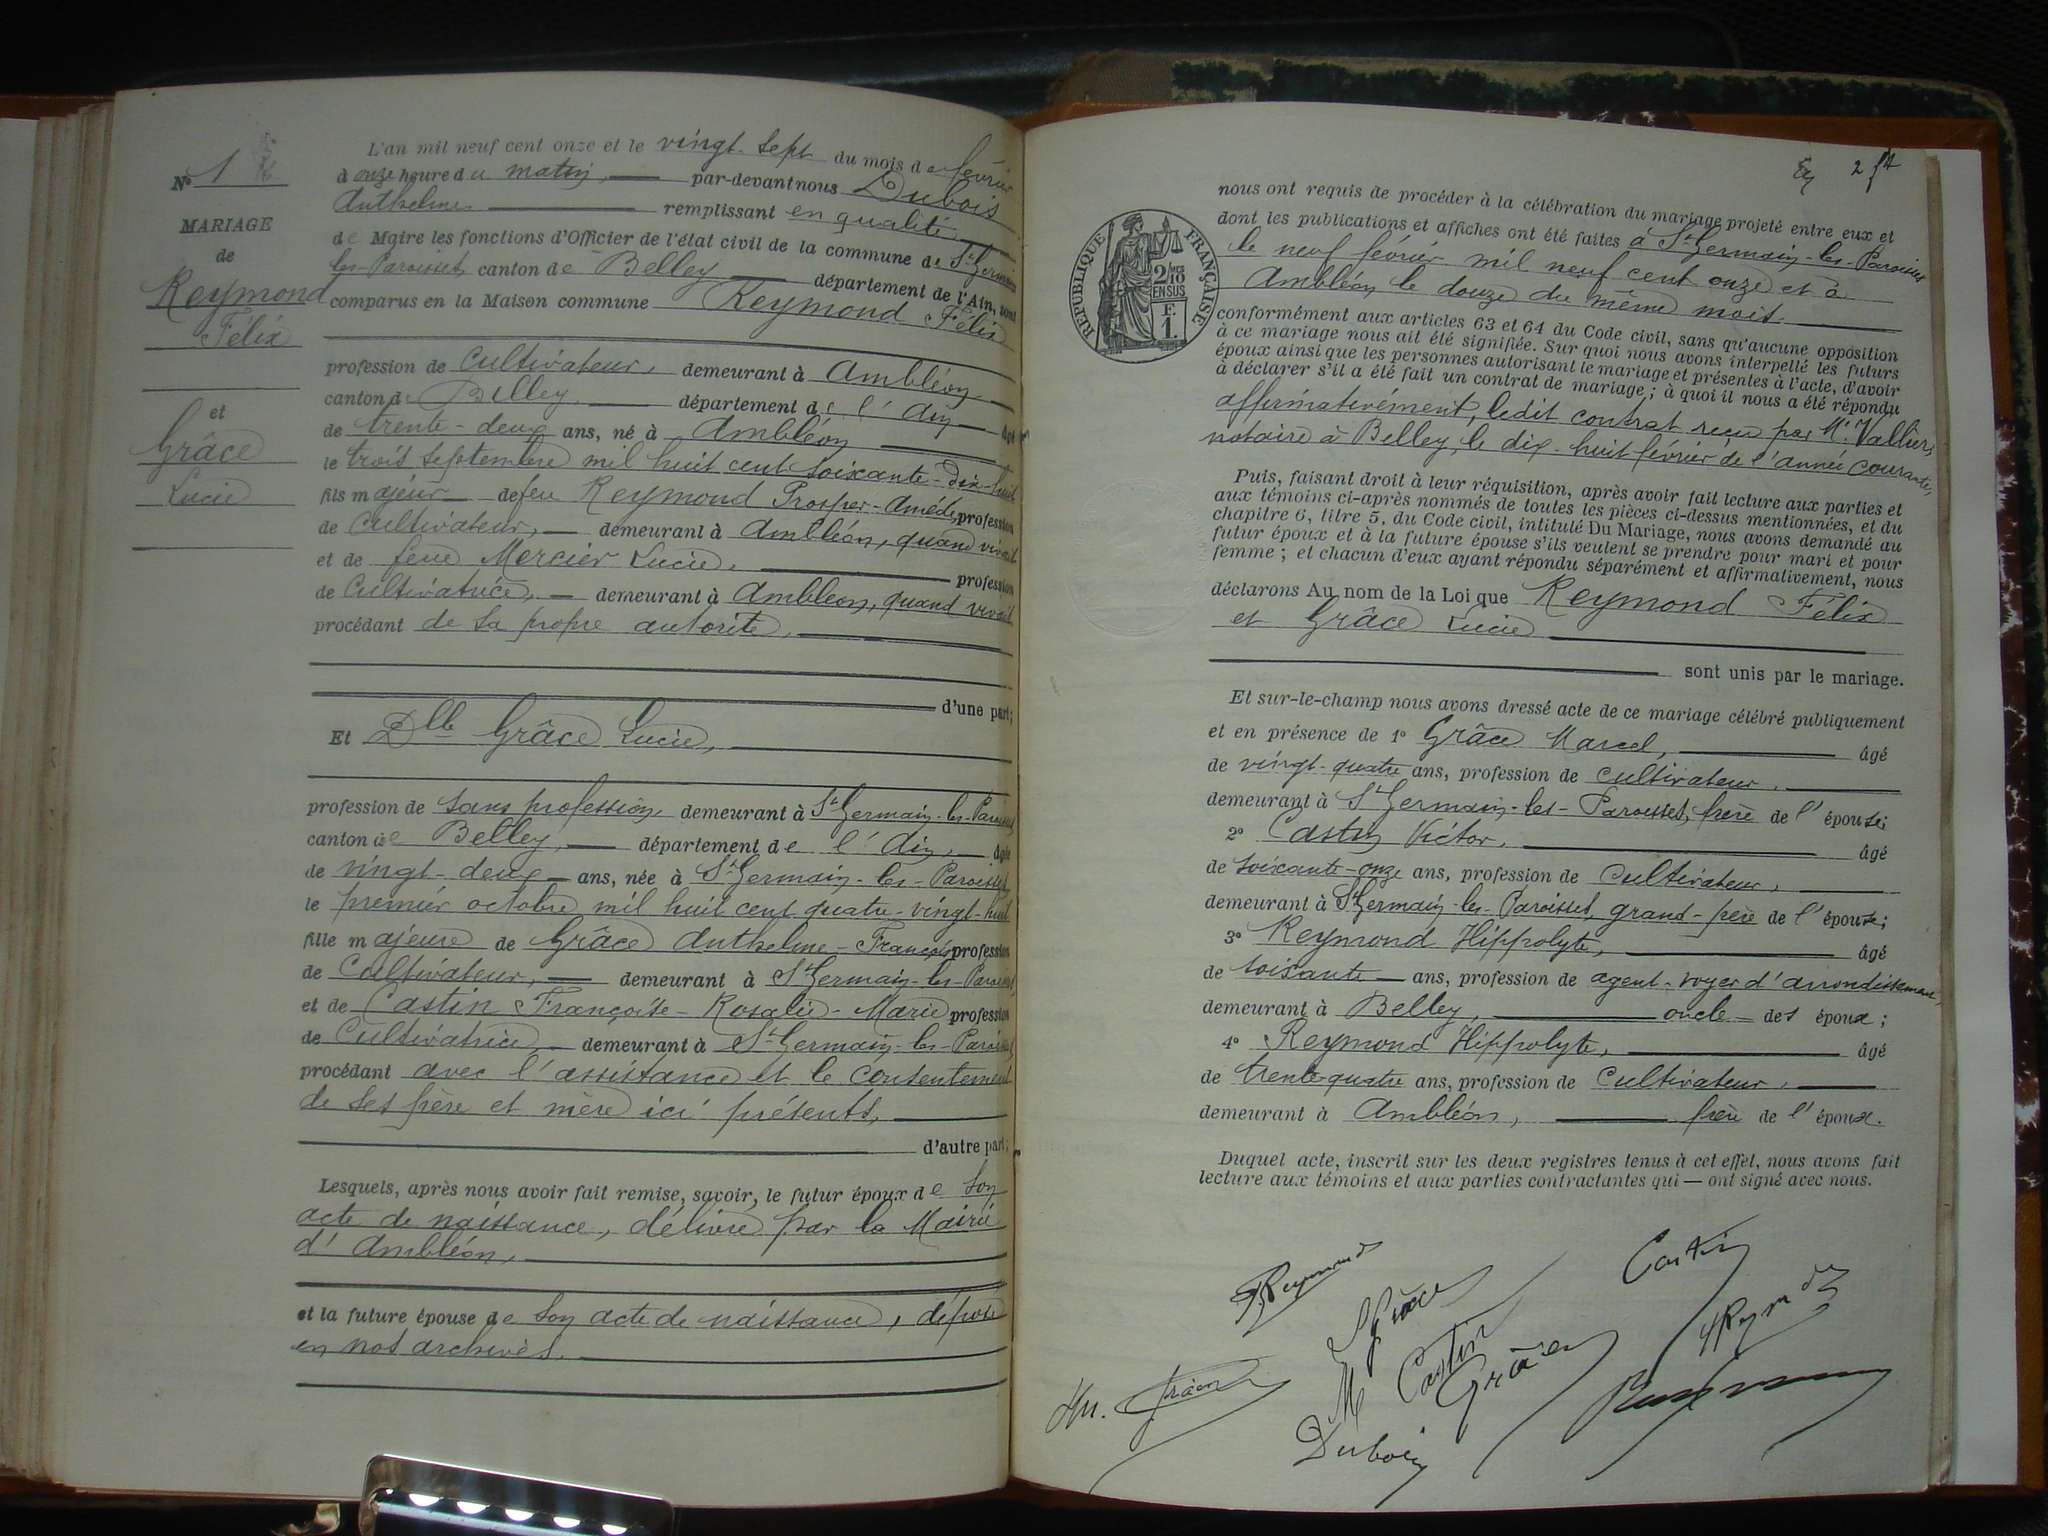 N° 1
MARIAGE
de
Reymond
Félix
et
Grâce
Lucie
L'an mil neuf cent onze et le vingt-sept du mois de février
à onze heure du matin, par-devant nous Dubois
Anthelme remplissant en qualité
de Maire les fonctions d'Officier de l'état civil de la commune de St Germain
les-Paroisses, canton de Belley département de l'Ain, sont
comparus en la Maison commune Reymond Félix
profession de Cultivateur, demeurant à Ambléon,
canton de Belley, département de l'Ain âgé
de trente-deux ans, né à Ambléon
le trois septembre mil huit cent soixante-dix-huit
fils majeur de feu Reymond Prosper-Amédé, profession
de Cultivateur, demeurant à Ambléon, quand vivait
et de feue Mercier Lucie, profession
de Cultivatrice, demeurant à Ambléon, quand vivait
procédant de sa propre autorité,
d'une part;
Et Dlle Grâce Lucie,
profession de sans profession demeurant à St Germain-les-Paroisses
canton de Belley, département de l'Ain, âgée
de vingt-deux ans, née à St Germain-les-Paroisses,
le premier octobre mil huit cent quatre-vingt-huit
fille majeure de Grâce Anthelme-François profession
de Cultivateur, demeurant à St Germain-les-Paroisses,
et de Castin Françoise-Rosalie-Marie profession
de Cultivatrice demeurant à St Germain-les-Paroisses,
procédant avec l'assistance et le consentement
de ses père et mère ici présents,
d'autre part;
Lesquels, après nous avoir fait remise, savoir, le futur époux de son
acte de naissance, délivré par la Mairie
d'Ambléon,
et la future épouse de son acte de naissance, déposé
en nos archives.
2
RÉPUBLIQUE FRANÇAISE
2/10 EN SUS
F.
1.
nous ont requis de procéder à la célébration du mariage projeté entre eux et
dont les publications et affiches ont été faites à St Germain-les-Paroisses
le neuf février mil neuf cent onze et à
Ambléon le douze du même mois.
conformément aux articles 63 et 64 du Code civil, sans qu'aucune opposition
à ce mariage nous ait été signifiée. Sur quoi nous avons interpellé les futurs
époux ainsi que les personnes autorisant le mariage et présentes à l'acte, d'avoir
à déclarer s'il a été fait un contrat de mariage; à quoi il nous a été répondu
affirmativement, ledit contrat reçu par Me Vallier,
notaire à Belley, le dix-huit février de l'année courante,
Puis, faisant droit à leur réquisition, après avoir fait lecture aux parties et
aux témoins ci-après nommés de toutes les pièces ci-dessus mentionnées, et du
chapitre 6, titre 5, du Code civil, intitulé Du Mariage, nous avons demandé au
futur époux et à la future épouse s'ils veulent se prendre pour mari et pour
femme; et chacun d'eux ayant répondu séparément et affirmativement, nous
déclarons Au nom de la Loi que Reymond Félix
et Grâce Lucie
sont unis par le mariage.
Et sur-le-champ nous avons dressé acte de ce mariage célébré publiquement
et en présence de 1° Grâce Marcel, âgé
de vingt-quatre ans, profession de cultivateur,
demeurant à St Germain-les-Paroisses, frère de l'épouse;
2° Castin Victor, âgé
de soixante-onze ans, profession de Cultivateur,
demeurant à St Germain-les-Paroisses, grand-père de l'épouse;
3° Reymond Hippolyte, âgé
de soixante ans, profession de agent-voyer d'arrondissement,
demeurant à Belley, oncle des époux;
4° Reymond Hippolyte, âgé
de trente-quatre ans, profession de Cultivateur,
demeurant à Ambléon, frère de l'époux.
Duquel acte, inscrit sur les deux registres tenus à cet effet, nous avons fait
lecture aux témoins et aux parties contractantes qui — ont signé avec nous.
F. Reymond
L Grâce
Castin
M Castin
Grâce
H Reymond
Grâce
Dubois
Reymond